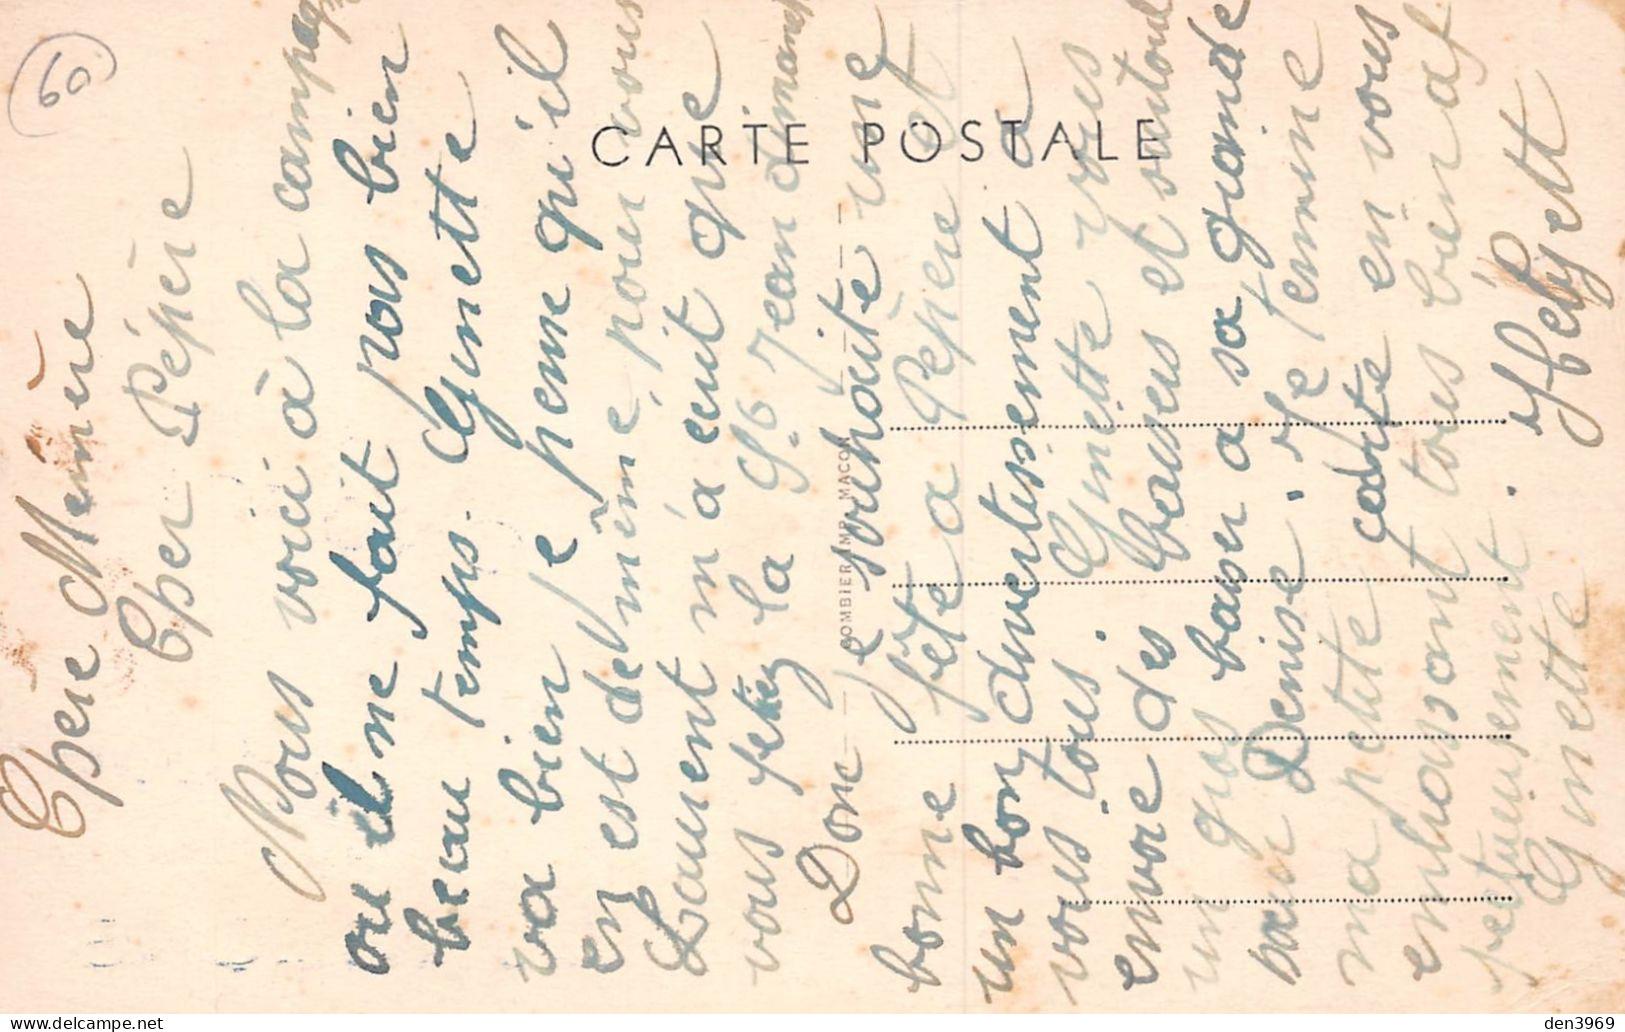 60
CARTE POSTALE
COMBIER IMP. MACON
Chère Mémère
Cher Pépère
Nous voici à la campagne
ou il ne fait pas bien
beau temps. Ginette
va bien je pense qu'il
en est de même pour vous
Laurent m'a écrit que
vous fetiez la St Jean dimanche
Donc je souhaite une
bonne fête a Pépère et
un bon divertissement a
vous tous. Ginette vous
envoie des baisers et surtout
un gros baiser a sa grande
Denise. Je termine
ma petite carte en vous
embrassant tous bien af
fectueusement.
Ginette
den3969